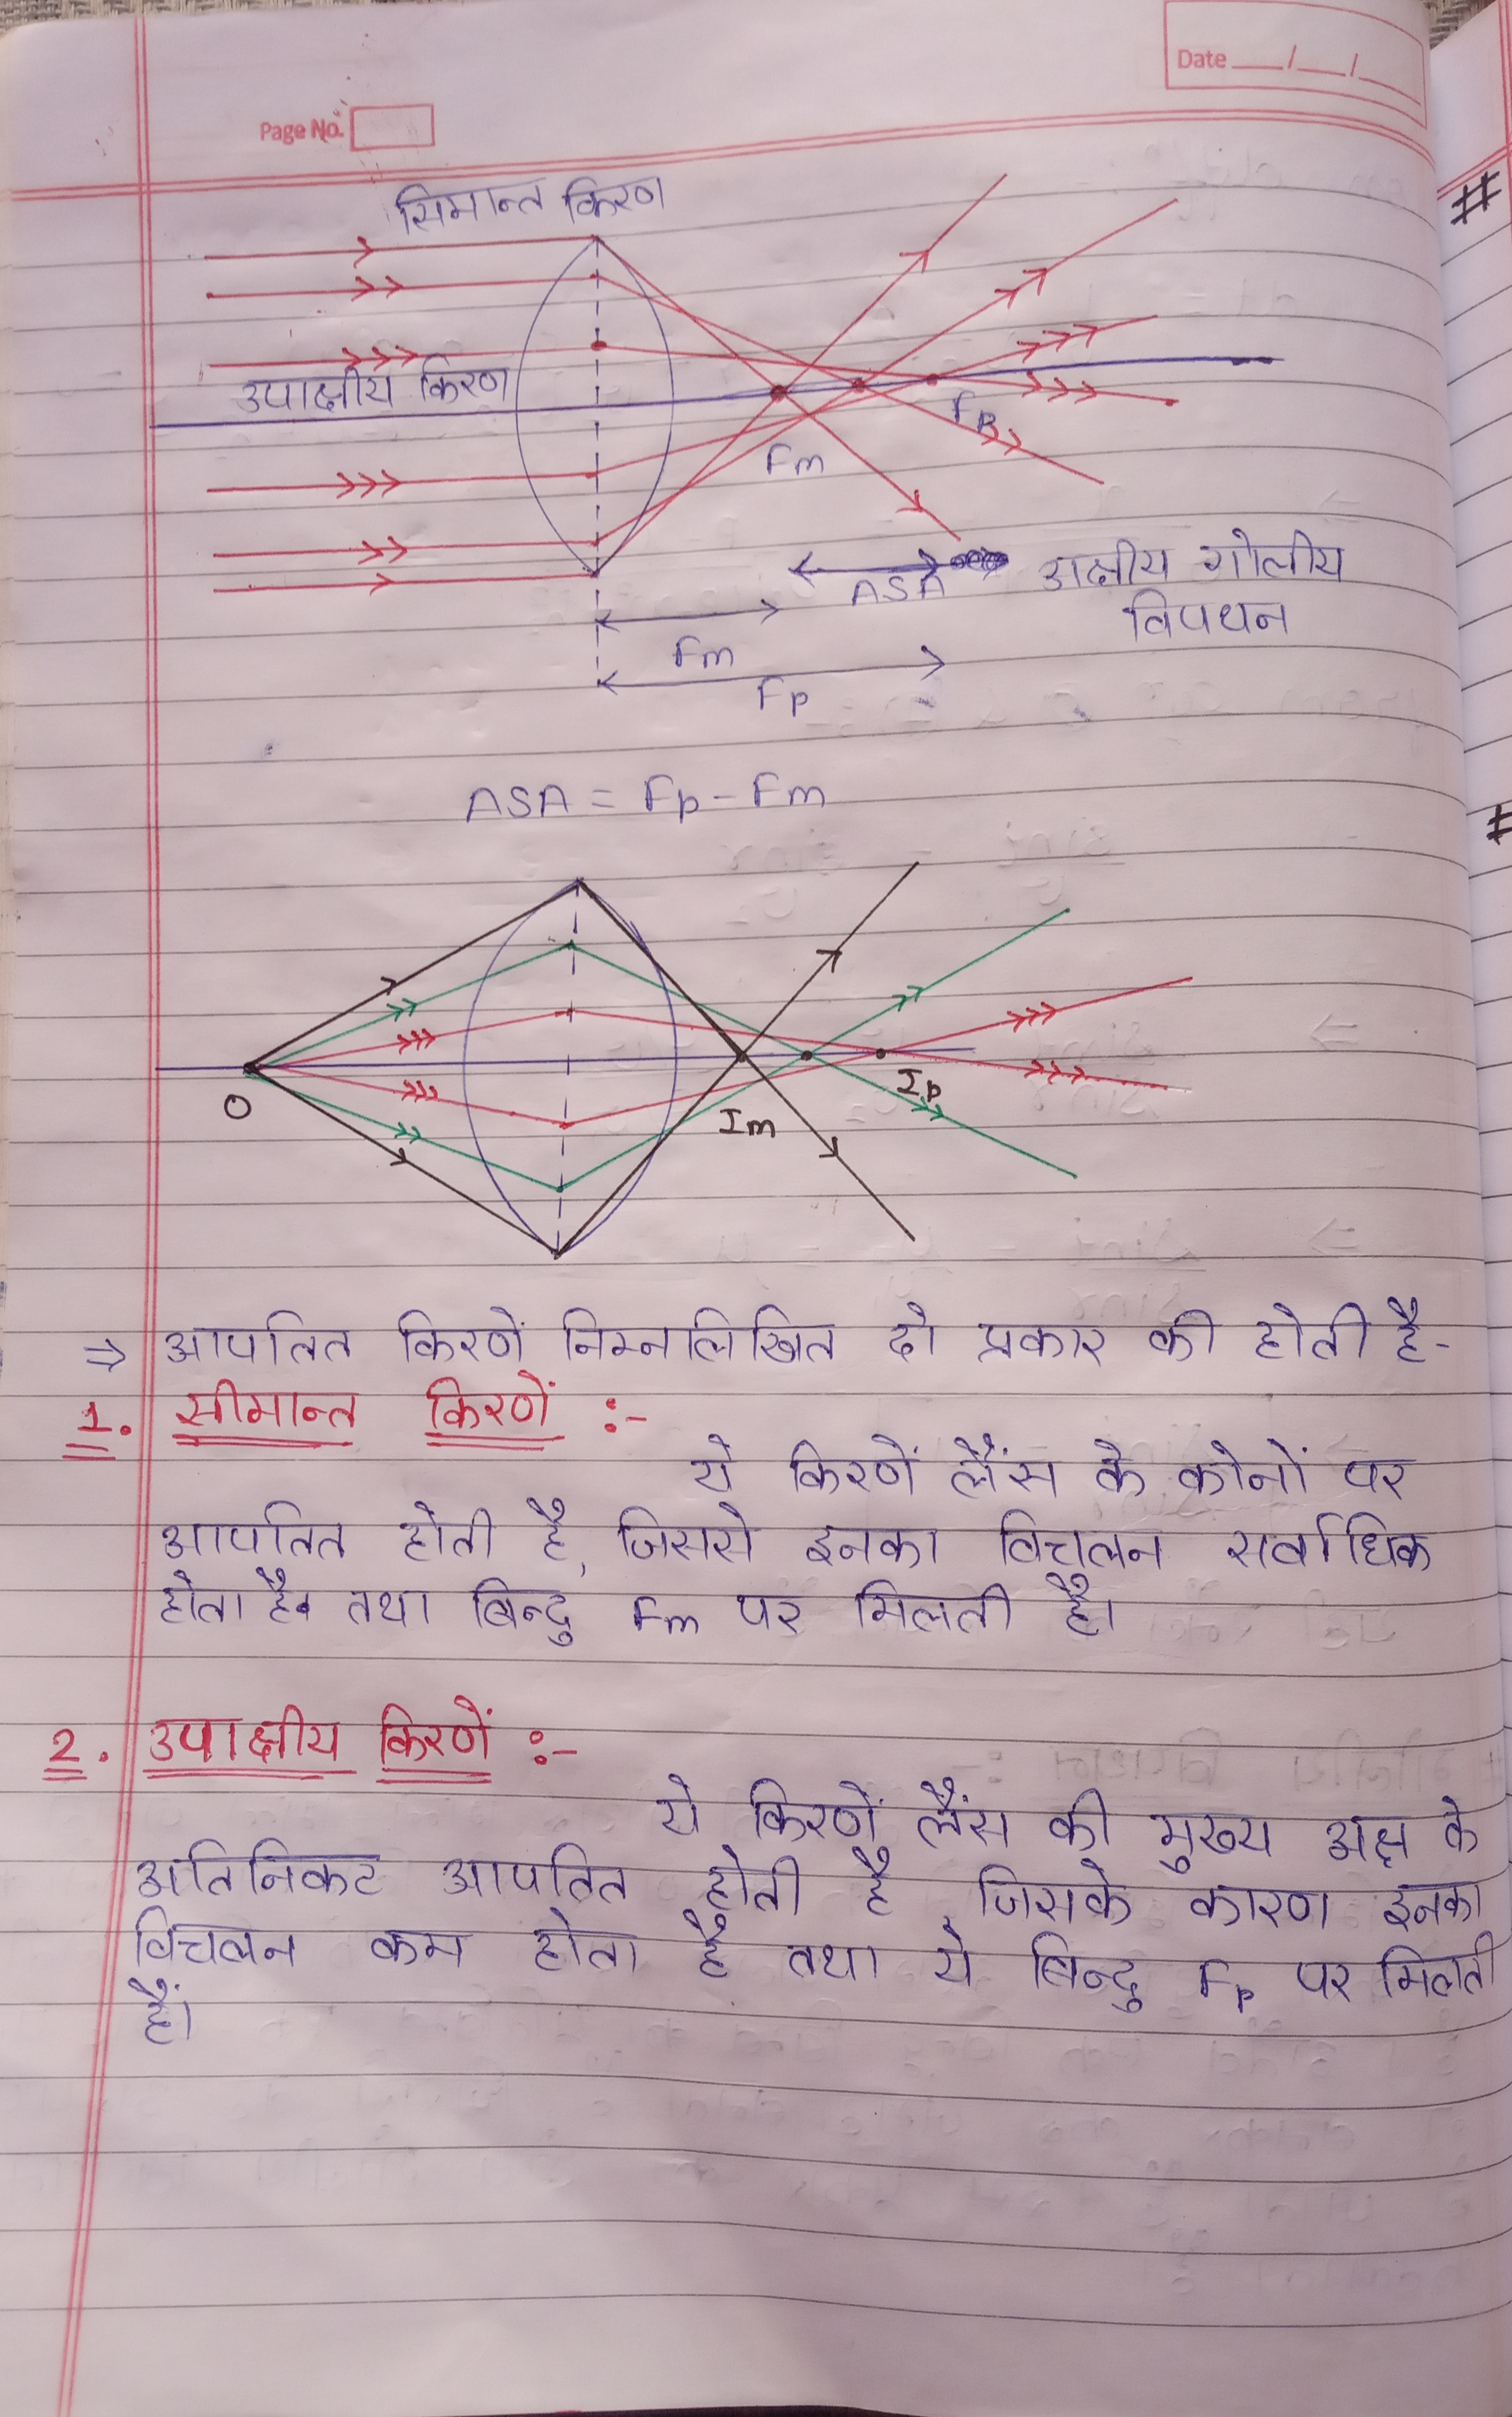 Date __/__/__
Page No.
#
सिमान्त किरण
उपाक्षीय किरण
FP
Fm
ASA अक्षीय गोलीय
विपथन
Fm
Fp
ASA = Fp - Fm
#
O
Im
Ip
⇒ आपतित किरणें निम्नलिखित दो प्रकार की होती है-
1. सीमान्त किरणें :-
ये किरणें लैंस के कोनों पर
आपतित होती है, जिससे इनका विचलन सर्वाधिक
होता है। तथा बिन्दु Fm पर मिलती है।
2. उपाक्षीय किरणें :-
ये किरणें लैंस की मुख्य अक्ष के
अतिनिकट आपतित होती है, जिसके कारण इनका
विचलन कम होता है तथा ये बिन्दु Fp पर मिलती
हैं।